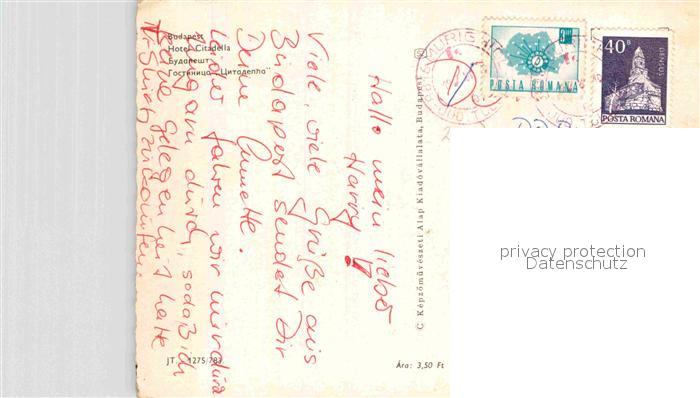 Budapest
Hotel Citadella
Будапешт
Гостиница „Цитаделла"
Hallo mein lieber
Harry!
Viele, viele Grüße aus
Budapest sendet Dir
Deine Annette.
Leider fahren wir nur durch
Ungarn durch, sodaß ich
keine Gelegenheit hatte
C Képzőművészeti Alap Kiadóvállalata, Budapest
JT. 1275/783
Ára: 3,50 Ft
3 LEI
POSTA ROMANA
40 B
DENSUS
POSTA ROMANA
privacy protection
Datenschutz